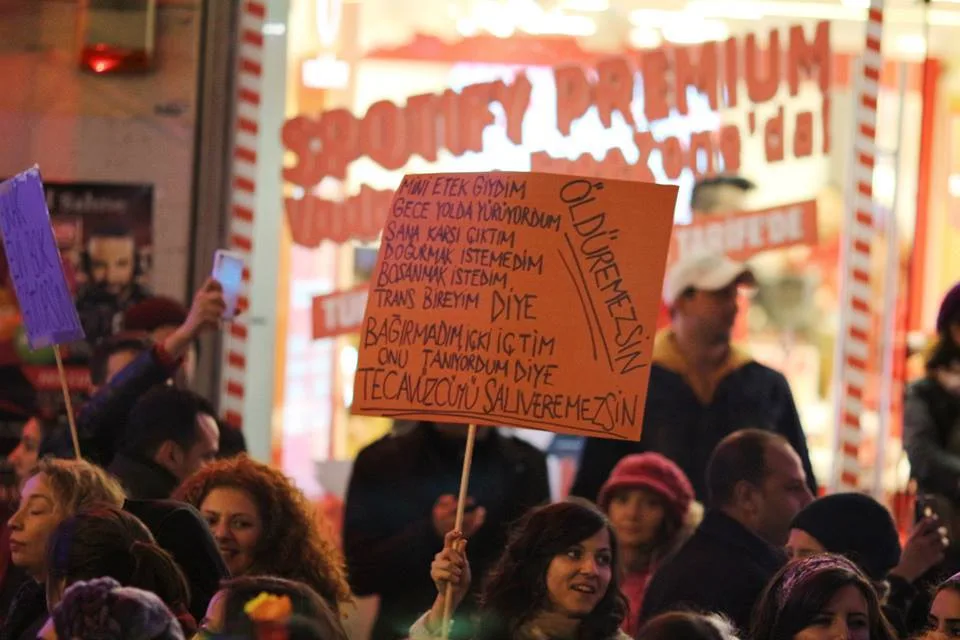 SPOTIFY PREMIUM
Vodafone'da!
TARİFE'DE
MİNİ ETEK GİYDİM
GECE YOLDA YÜRÜYORDUM
SANA KARŞI ÇIKTIM
DOĞURMAK İSTEMEDİM
BOŞANMAK İSTEDİM,
TRANS BİREYİM DİYE
ÖLDÜREMEZSİN
BAĞIRMADIM İÇKİ İÇTİM
ONU TANIYORDUM DİYE
TECAVÜZCÜYÜ SALIVEREMEZSİN